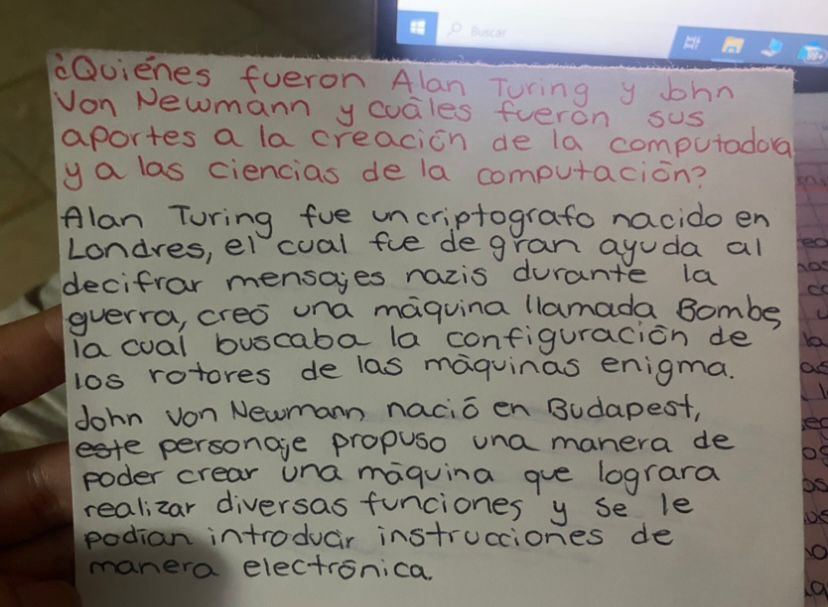 Buscar
¿Quiénes fueron Alan Turing y John
Von Newmann y cuáles fueron sus
aportes a la creación de la computadora
y a las ciencias de la computación?
Alan Turing fue un criptografo nacido en
Londres, el cual fue de gran ayuda al
decifrar mensajes nazis durante la
guerra, creó una máquina llamada Bombe,
la cual buscaba la configuración de
los rotores de las máquinas enigma.
John Von Newmann nació en Budapest,
este personaje propuso una manera de
poder crear una máquina que lograra
realizar diversas funciones y se le
podian introducir instrucciones de
manera electrónica.